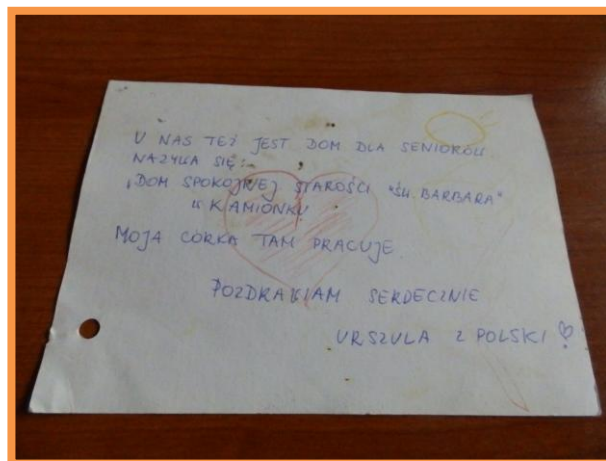 U NAS TEŻ JEST DOM DLA SENIORÓW
NAZYWA SIĘ:
"DOM SPOKOJNEJ STAROŚCI "ŚW. BARBARA"
W KAMIONKU
MOJA CÓRKA TAM PRACUJE.
POZDRAWIAM SERDECZNIE
URSZULA Z POLSKI ♡